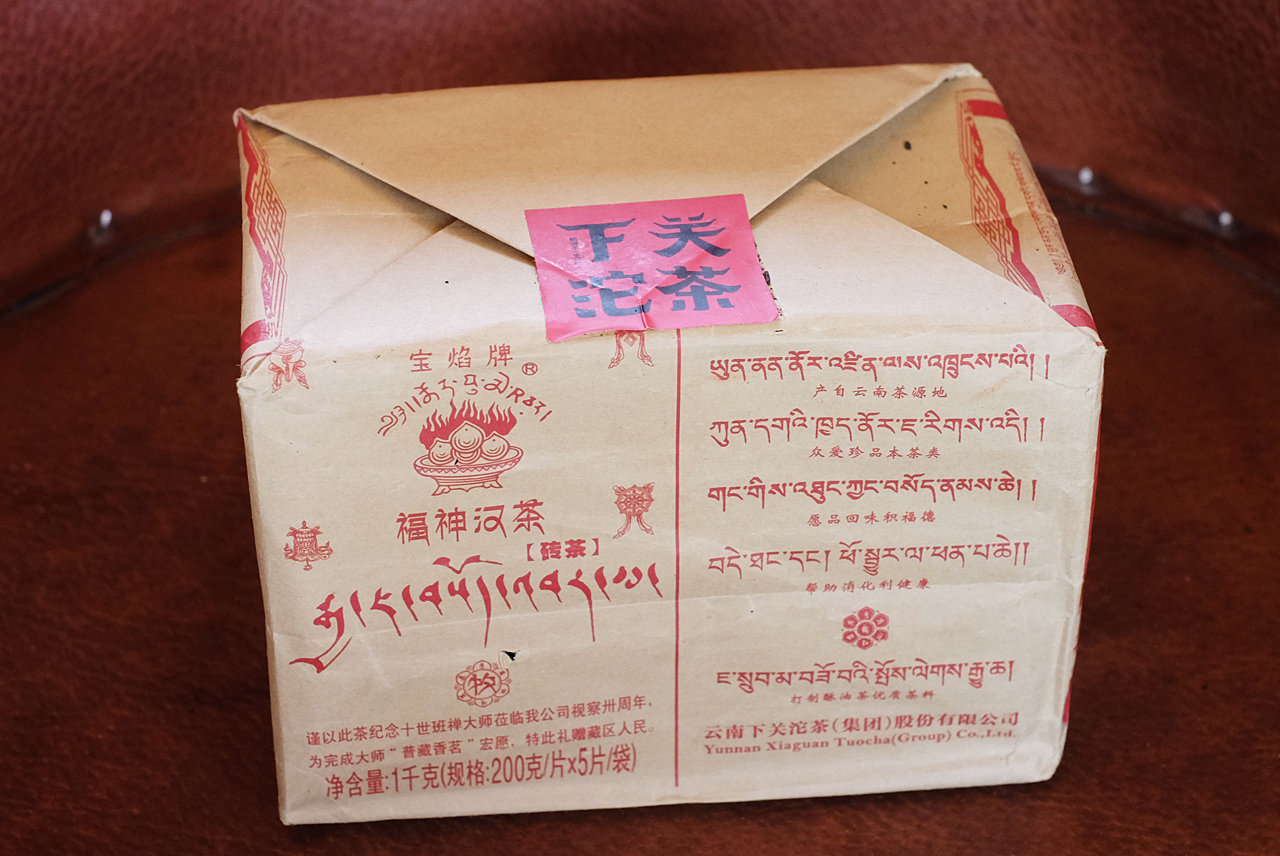 下关
沱茶
宝焰牌®
福神汉茶
【砖茶】
谨以此茶纪念十世班禅大师莅临我公司视察卅周年，
为完成大师“普藏香茗”宏愿，特此礼赠藏区人民。
净含量:1千克(规格:200克/片x5片/袋)
ཡུན་ནན་ནོར་འཛིན་ལས་འཁྲུངས་པའི། །
产自云南茶源地
ཀུན་དགའི་ཁྱད་ནོར་ཇ་རིགས་འདི། །
众爱珍品本茶类
གང་གིས་འཐུང་ཀྱང་བསོད་ནམས་ཆེ། །
愿品回味积福德
བདེ་ཐང་དང་། ཕོ་སྦྱར་ལ་ཕན་པ་ཆེ།།
帮助消化利健康
ཇ་སྲུབ་མ་བཟོ་བའི་སྤོས་ལེགས་རྒྱུ་ཆ།
打制酥油茶优质茶料
云南下关沱茶(集团)股份有限公司
Yunnan Xiaguan Tuocha(Group) Co.,Ltd.